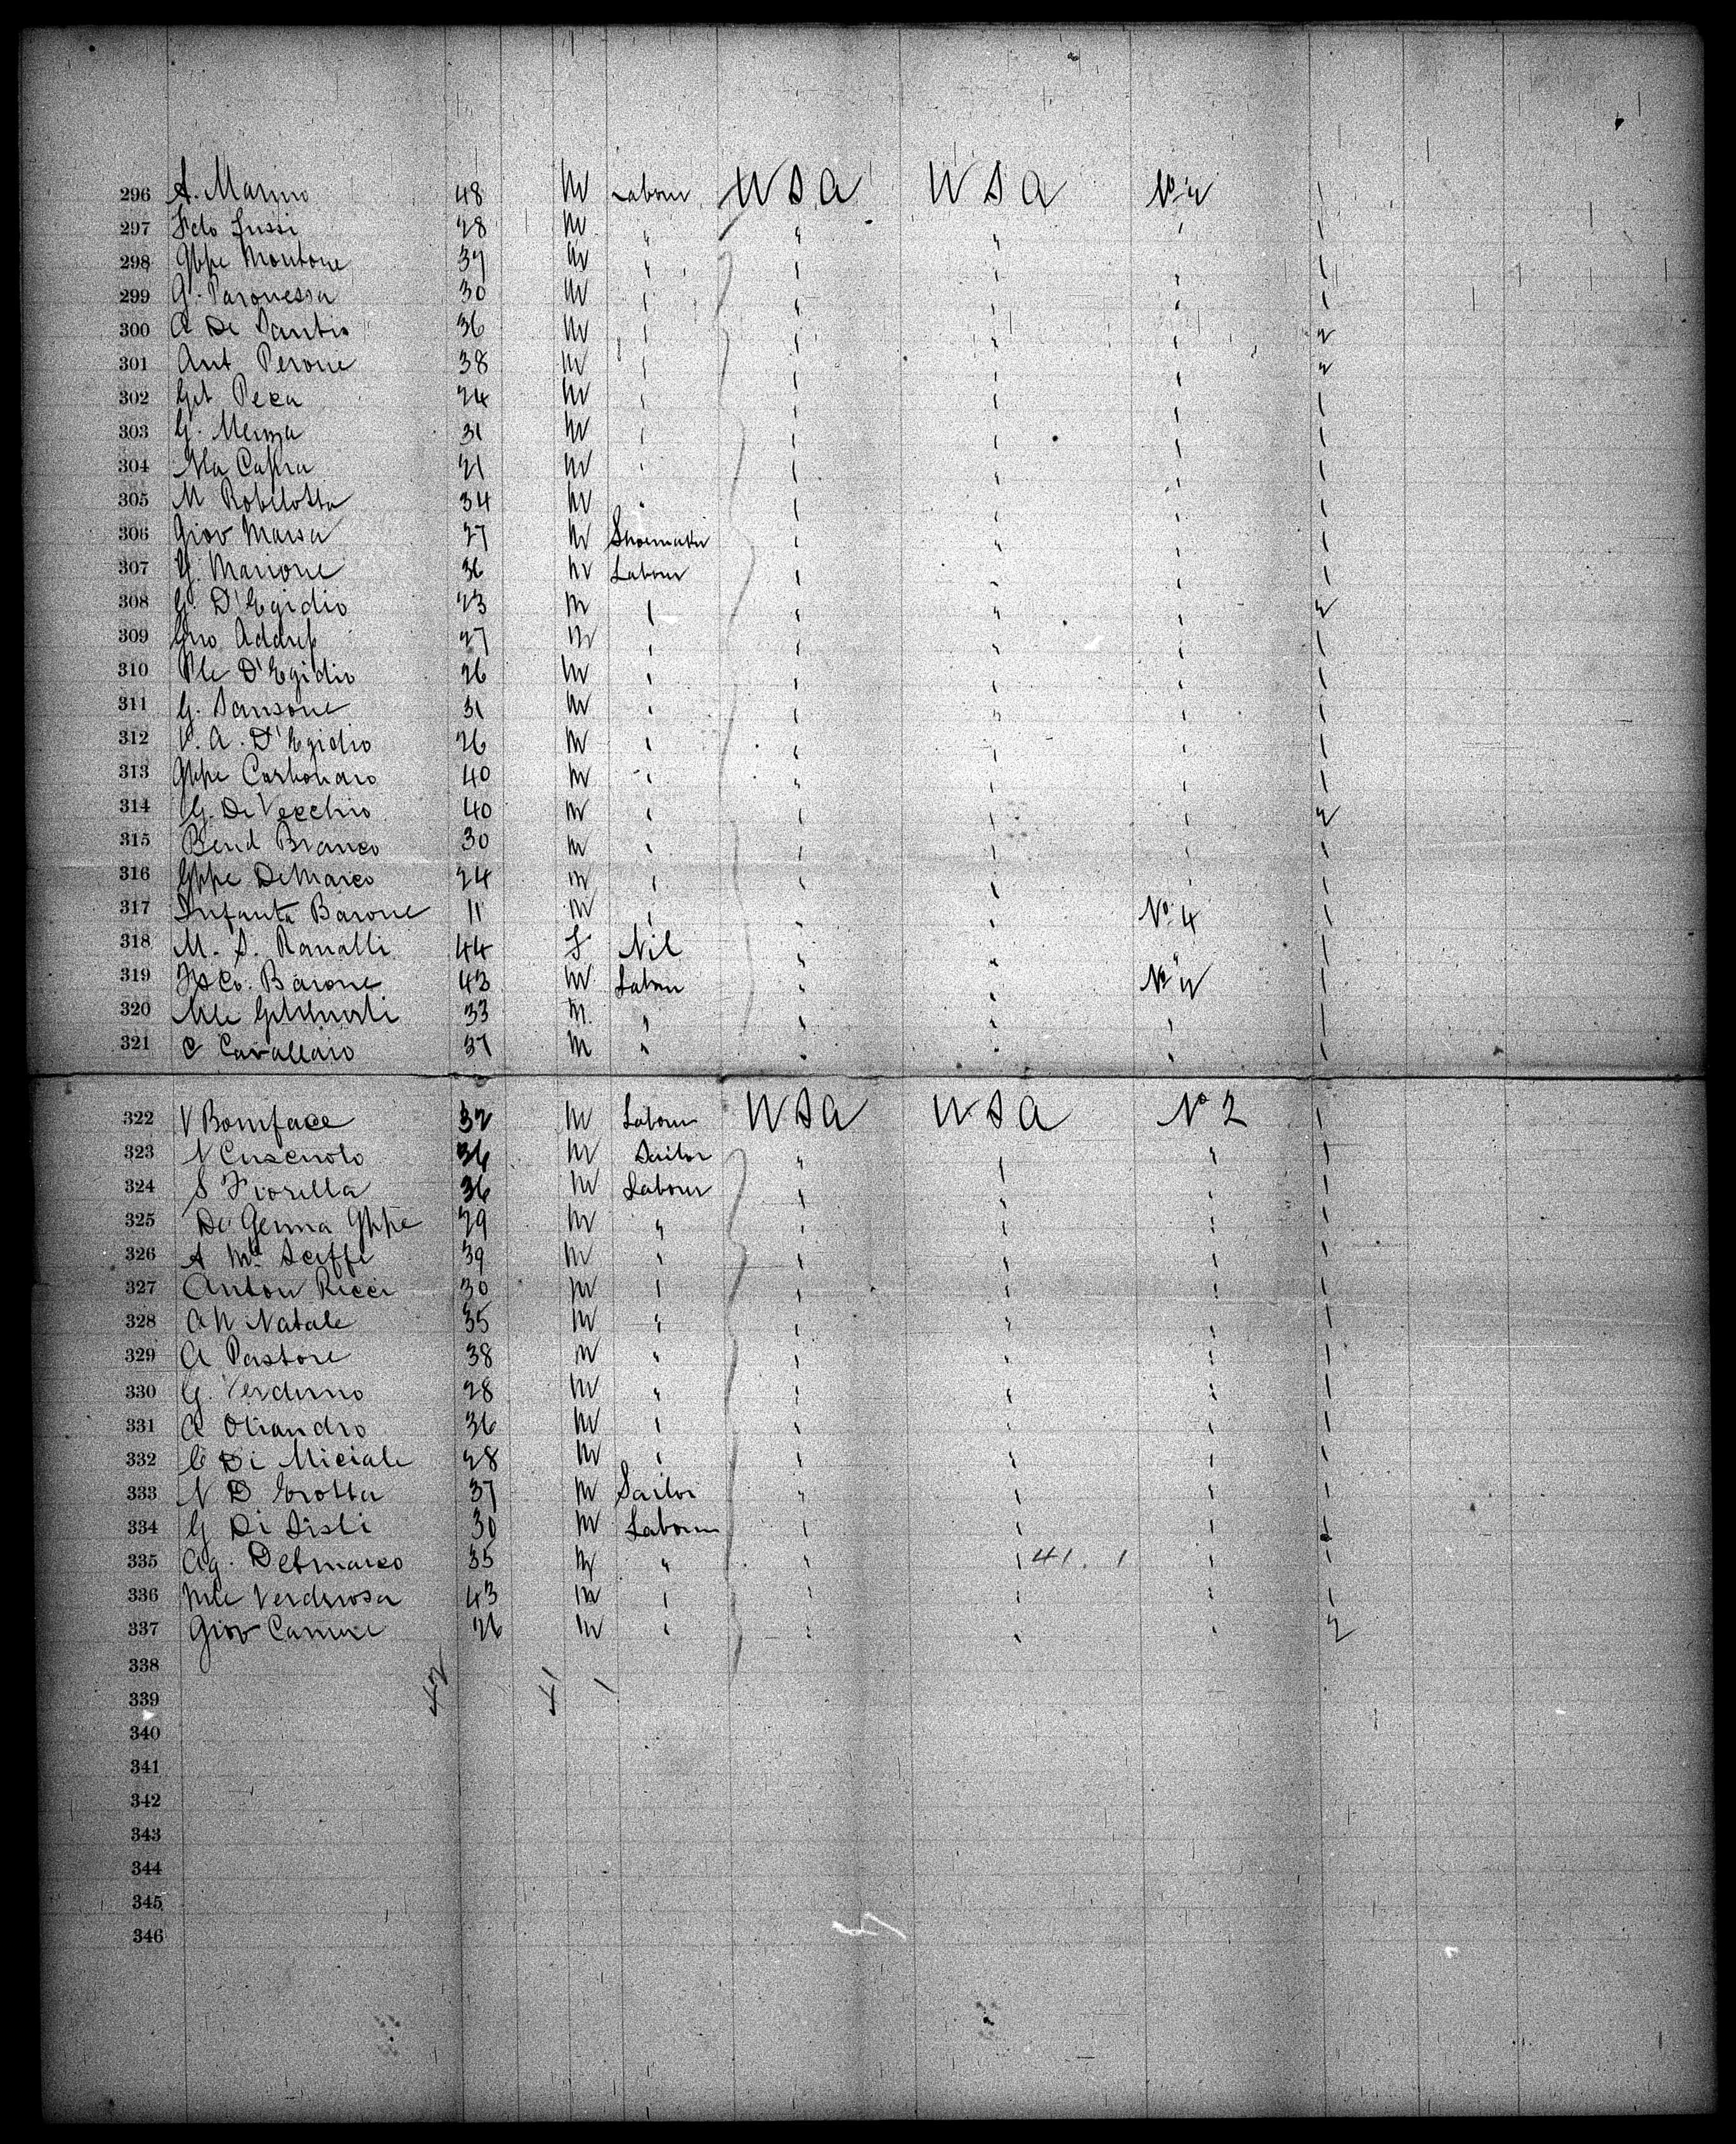 296 A. Marino 48 M Labour W S A W S A No 2 1
297 28 M " " " " 1
298 Gppe Montone 37 M " " " " 1
299 G. Paronessa 30 M " " " " 1
300 A De Santis 36 M " " " " 2
301 Ant Perone 38 M " " " " 2
302 Peca 24 M " " " " 1
303 G. 31 M " " " " 1
304 Nla Capra 21 M " " " " 1
305 M Robilotta 34 M " " " " 1
306 Giov Marsa 27 M Shoemaker " " " 1
307 G. Marione 36 M Labour " " " 1
308 G. D'Egidio 23 M " " " " 2
309 27 M " " " " 1
310 Ple D'Egidio 26 M " " " " 1
311 G. Sansone 31 M " " " " 1
312 V. A. D'Egidio 26 M " " " " 1
313 Gppe Carbonaro 40 M " " " " 1
314 G. De Vecchio 40 M " " " " 2
315 Bend Branco 30 M " " " " 1
316 Gppe DeMarco 24 M " " " " 1
317 Infanta Barone 11 M " " " No. 4 1
318 M. S. Ranalli 44 F Nil " " " 1
319 Barone 43 M Labour " " No 2 1
320 33 M. " " " " 1
321 C Cavallaro 37 M " " " " 1
322 V Boniface 32 M Labour W S A W S A No 2 1
323 N 36 M Sailor " " " 1
324 S Fiorilla 36 M Labour " " " 1
325 De Genna Gppe 29 M " " " " 1
326 A Ma Sciffi 39 M " " " " 1
327 Anton Ricci 30 M " " " " 1
328 A N Natale 35 M " " " " 1
329 A Pastore 38 M " " " " 1
330 G. Verdino 28 M " " " " 1
331 A Oliandro 36 M " " " " 1
332 C Di Miciale 28 M " " " " 1
333 N D Grotta 37 M Sailor " " " 1
334 G Di Sisti 30 M Labour " " " 1
335 Ag. Delmarco 35 M " " " 41. 1 " 1
336 Mle Verdirosa 43 M " " " " 1
337 Giov 26 M " " " " 2
338 42 41 1
339
340
341
342
343
344
345
346